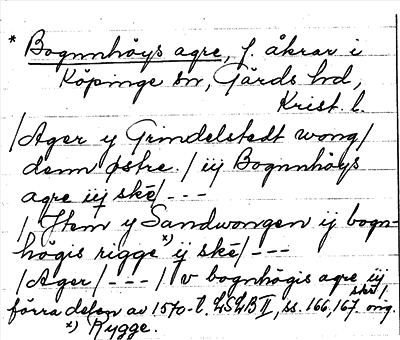 * Bognnhöys agre, f. åkrar i
Köpinge sn, Gärds hd,
Krist. l.
/Ager y Grindelstedt wong/
denn østre./ iij Bognnhöys
agre iij skē/ - - -
/ Jtem y Sandwongen ij bogn-
högis rigge x) ij skē/ - - -
/Ager/ - - - / v bognhögis agre iij
skē/.
förra delen av 1570-t. LSLB II, ss. 166, 167. orig.
x) Rygge.